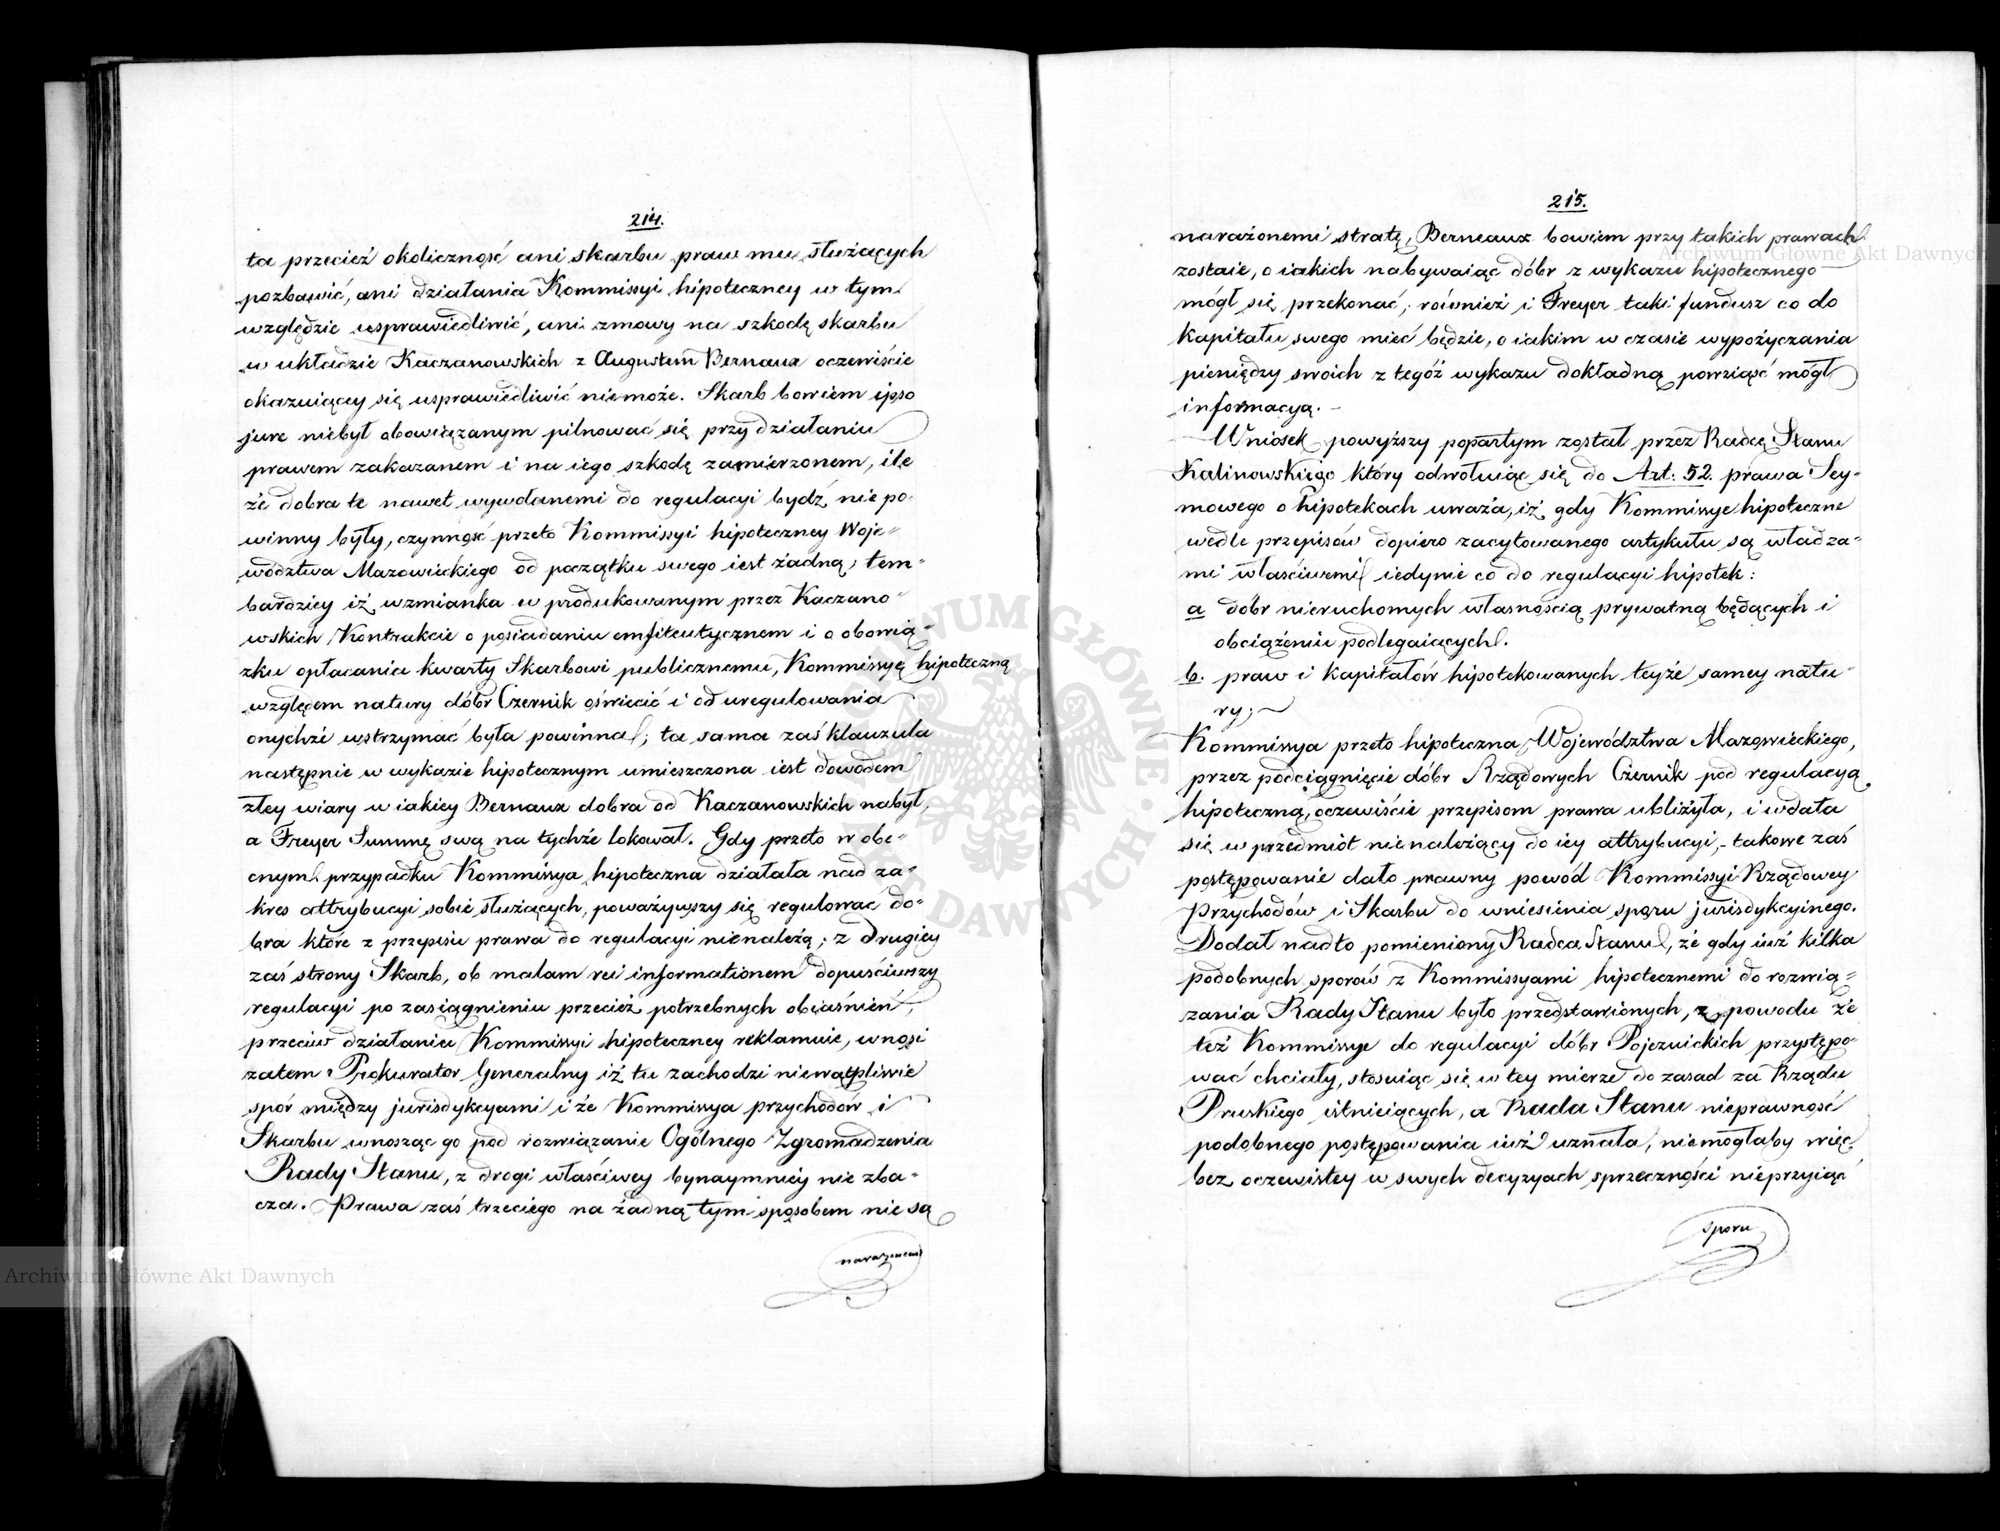 214.
ta przecież okoliczność ani skarbu praw mu służących
pozbawić, ani działania Kommissyi hipoteczney w tym
względzie usprawiedliwić, ani zmowy na szkodę skarbu
w układzie Kaczanowskich z Augustem Bernaux oczewiście
okazuiącey się usprawiedliwić niemoże. Skarb bowiem ipso
jure niebył obowiązanym pilnować się przy działaniu
prawem zakazanem i na iego szkodę zamierzonem, ile
że dobra te nawet wywołanemi do regulacyi bydź niepo-
winny były, czynność przeto Kommissyi hipoteczney Woje=
wództwa Mazowieckiego od początku swego iest żadną; tem-
bardziey iż wzmianka w produkowanym przez Kaczano=
wskich Kontrakcie o posiadaniu emfiteutycznem i o obowią=
zku opłacania kwarty Skarbowi publicznemu, Kommissyę hipoteczną
względem natury dóbr Czernik oświecić i od uregulowania
onychże wstrzymać była powinna; ta sama zaś klauzula
następnie w wykazie hipotecznym umieszczona iest dowodem
złey wiary w iakiey Bernaux dobra od Kaczanowskich nabył,
a Freyer Summę swą na tychże lokował. Gdy przeto w obe=
cnym przypadku Kommissya hipoteczna działała nad za=
kres attrybucyi sobie służących, poważywszy się regulować do=
bra które z przepisu prawa do regulacyi nienależą; z drugiey
zaś strony Skarb, ob malam rei informationem dopuściwszy
regulacyi po zasiągnieniu przecież potrzebnych obiaśnień,
przeciw działaniu Kommissyi hipoteczney reklamuie, wnosi
zatem Prokurator Generalny iż tu zachodzi niewątpliwie
spór między jurisdykcyami i że Kommissya przychodów i
Skarbu wnosząc go pod rozwiązanie Ogólnego Zgromadzenia
Rady Stanu, z drogi właściwey bynaymniey nie zba=
cza. Prawa zaś trzeciego na żadną tym sposobem nie są
narażonemi
215.
narażonemi stratę, Berneaux bowiem przy takich prawach
zostaie, o iakich nabywaiąc dóbr z wykazu hipotecznego
mógł się przekonać; również i Freyer taki fundusz co do
kapitału swego mieć będzie, o iakim w czasie wypożyczania
pieniędzy swoich z tegóż wykazu dokładną powziąść mógł
informacyą. -
Wniosek powyższy popartym został przez Radcę Stanu
Kalinowskiego który odwołuiąc się do Art: 52. prawa Sey-
mowego o hipotekach uważa, iż gdy Kommissye hipoteczne
wedle przepisów dopiero zacytowanego artykułu są władza=
mi właściwemi iedynie co do regulacyi hipotek:
a dóbr nieruchomych własnością prywatną będących i
obciążeniu podlegaiących.
b. praw i kapitałów hipotekowanych teyże samey natu=
ry;
Kommissya przeto hipoteczna Województwa Mazowieckiego,
przez podciągnięcie dóbr Rządowych Czernik pod regulacyą
hipoteczną, oczewiście przepisom prawa ubliżyła, i wdała
się w przedmiot nienależący do iey attrybucyi, - takowe zaś
postępowanie dało prawny powód Kommissyi Rządowey
Przychodów i Skarbu do wniesienia sporu jurisdykcyinego.
Dodał nadto pomieniony Radca Stanu, że gdy iuż kilka
podobnych sporów z Kommissyami hipotecznemi do rozwią=
zania Rady Stanu było przedstawionych, z powodu że
też Kommissye do regulacyi dóbr Pojezuickich przystępo=
wać chciały, stosuiąc się w tey mierze do zasad za Rządu
Pruskiego istnieiących, a Rada Stanu nieprawność
podobnego postępowania iuż uznała, niemogłaby więc
bez oczewistey w swych decyzyach sprzeczności nieprzyiąć
sporu